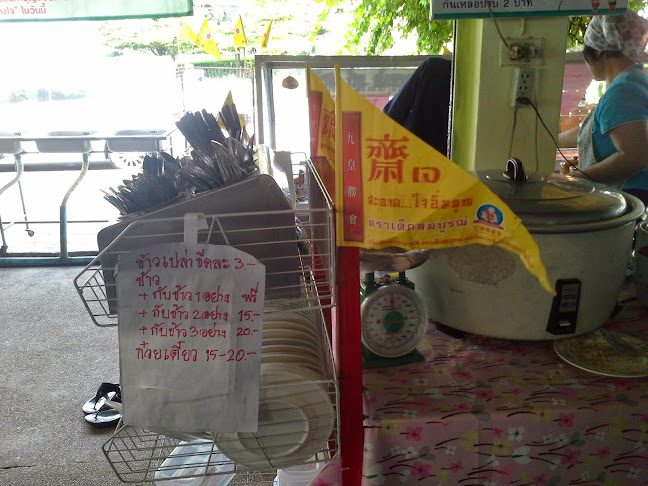 งใจ" ในวันนี้
กินเหลือปรับ 2 บาท
ข้าวเปล่าขีดละ 3.-
ข้าว
+ กับข้าว 1 อย่าง ฟรี
+ กับข้าว 2 อย่าง 15.-
+ กับข้าว 3 อย่าง 20.-
ก๋วยเตี๋ยว 15-20.-
九皇勝會
齋 เจ
สะอาด...ใจอิ่มบุญ
ตราเด็กสมบูรณ์